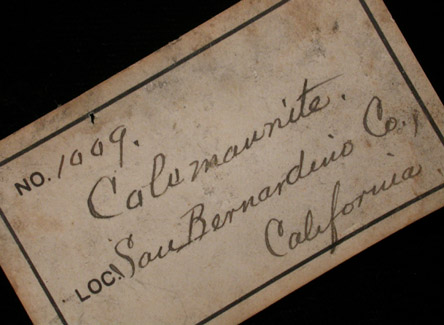 NO. 1009.
Calumaunite.
LOC. San Bernardino Co.,
California.